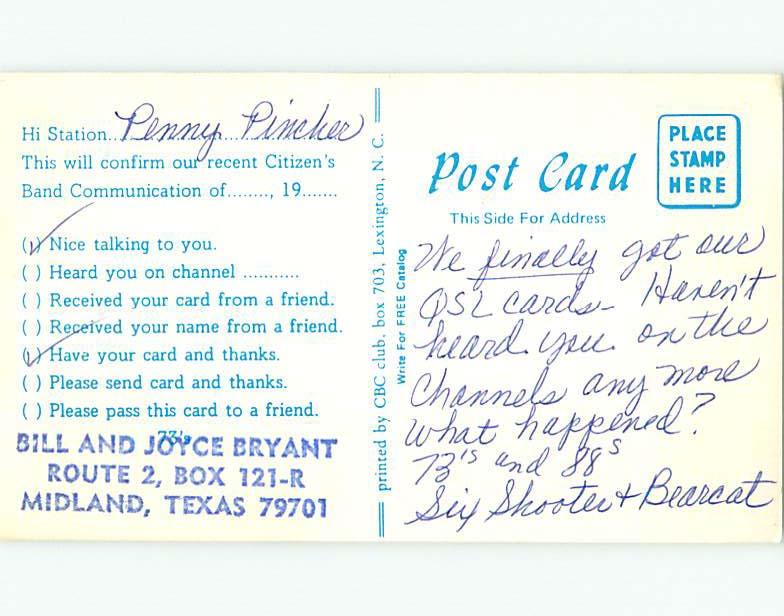 Hi Station...Penny Pincher
This will confirm our recent Citizen's
Band Communication of........, 19.......
(✓) Nice talking to you.
( ) Heard you on channel ...........
( ) Received your card from a friend.
( ) Received your name from a friend.
(✓) Have your card and thanks.
( ) Please send card and thanks.
( ) Please pass this card to a friend.
73's
BILL AND JOYCE BRYANT
ROUTE 2, BOX 121-R
MIDLAND, TEXAS 79701
printed by CBC club, box 703, Lexington, N. C.
Write For FREE Catalog
Post Card
This Side For Address
PLACE
STAMP
HERE
We finally got our
QSL cards - Haven't
heard you on the
channels any more
What happened?
73's and 88s
Six Shooter + Bearcat